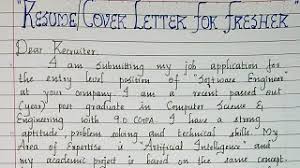 "RESUME/COVER LETTER FOR FRESHER"
Dear Recruiter,
I am submitting my job application for
the entry level position of "Software Engineer"
at your company. I am a recent passed out
(year) post graduate in Computer Science &
Engineering with 9.0 CGPA. I have a strong
aptitude, problem solving and technical skills. "My
Area of Expertise is "Artificial Intelligence" and
my academic project is based on the same concept.